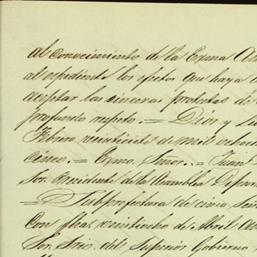 al conocimiento de la Exma As
al espediente los efectos que haya
aceptar las sinceras protestas de
profundo respeto. = Dios y
Febrero veintisiete de mil
Cinco. = Exmo. Señor. = Juan
Sor. Presidente de la Asamblea Depar
Subprefectura de
Con fha. veintiocho de Abril
Sor. Srio. del Superior Gobierno